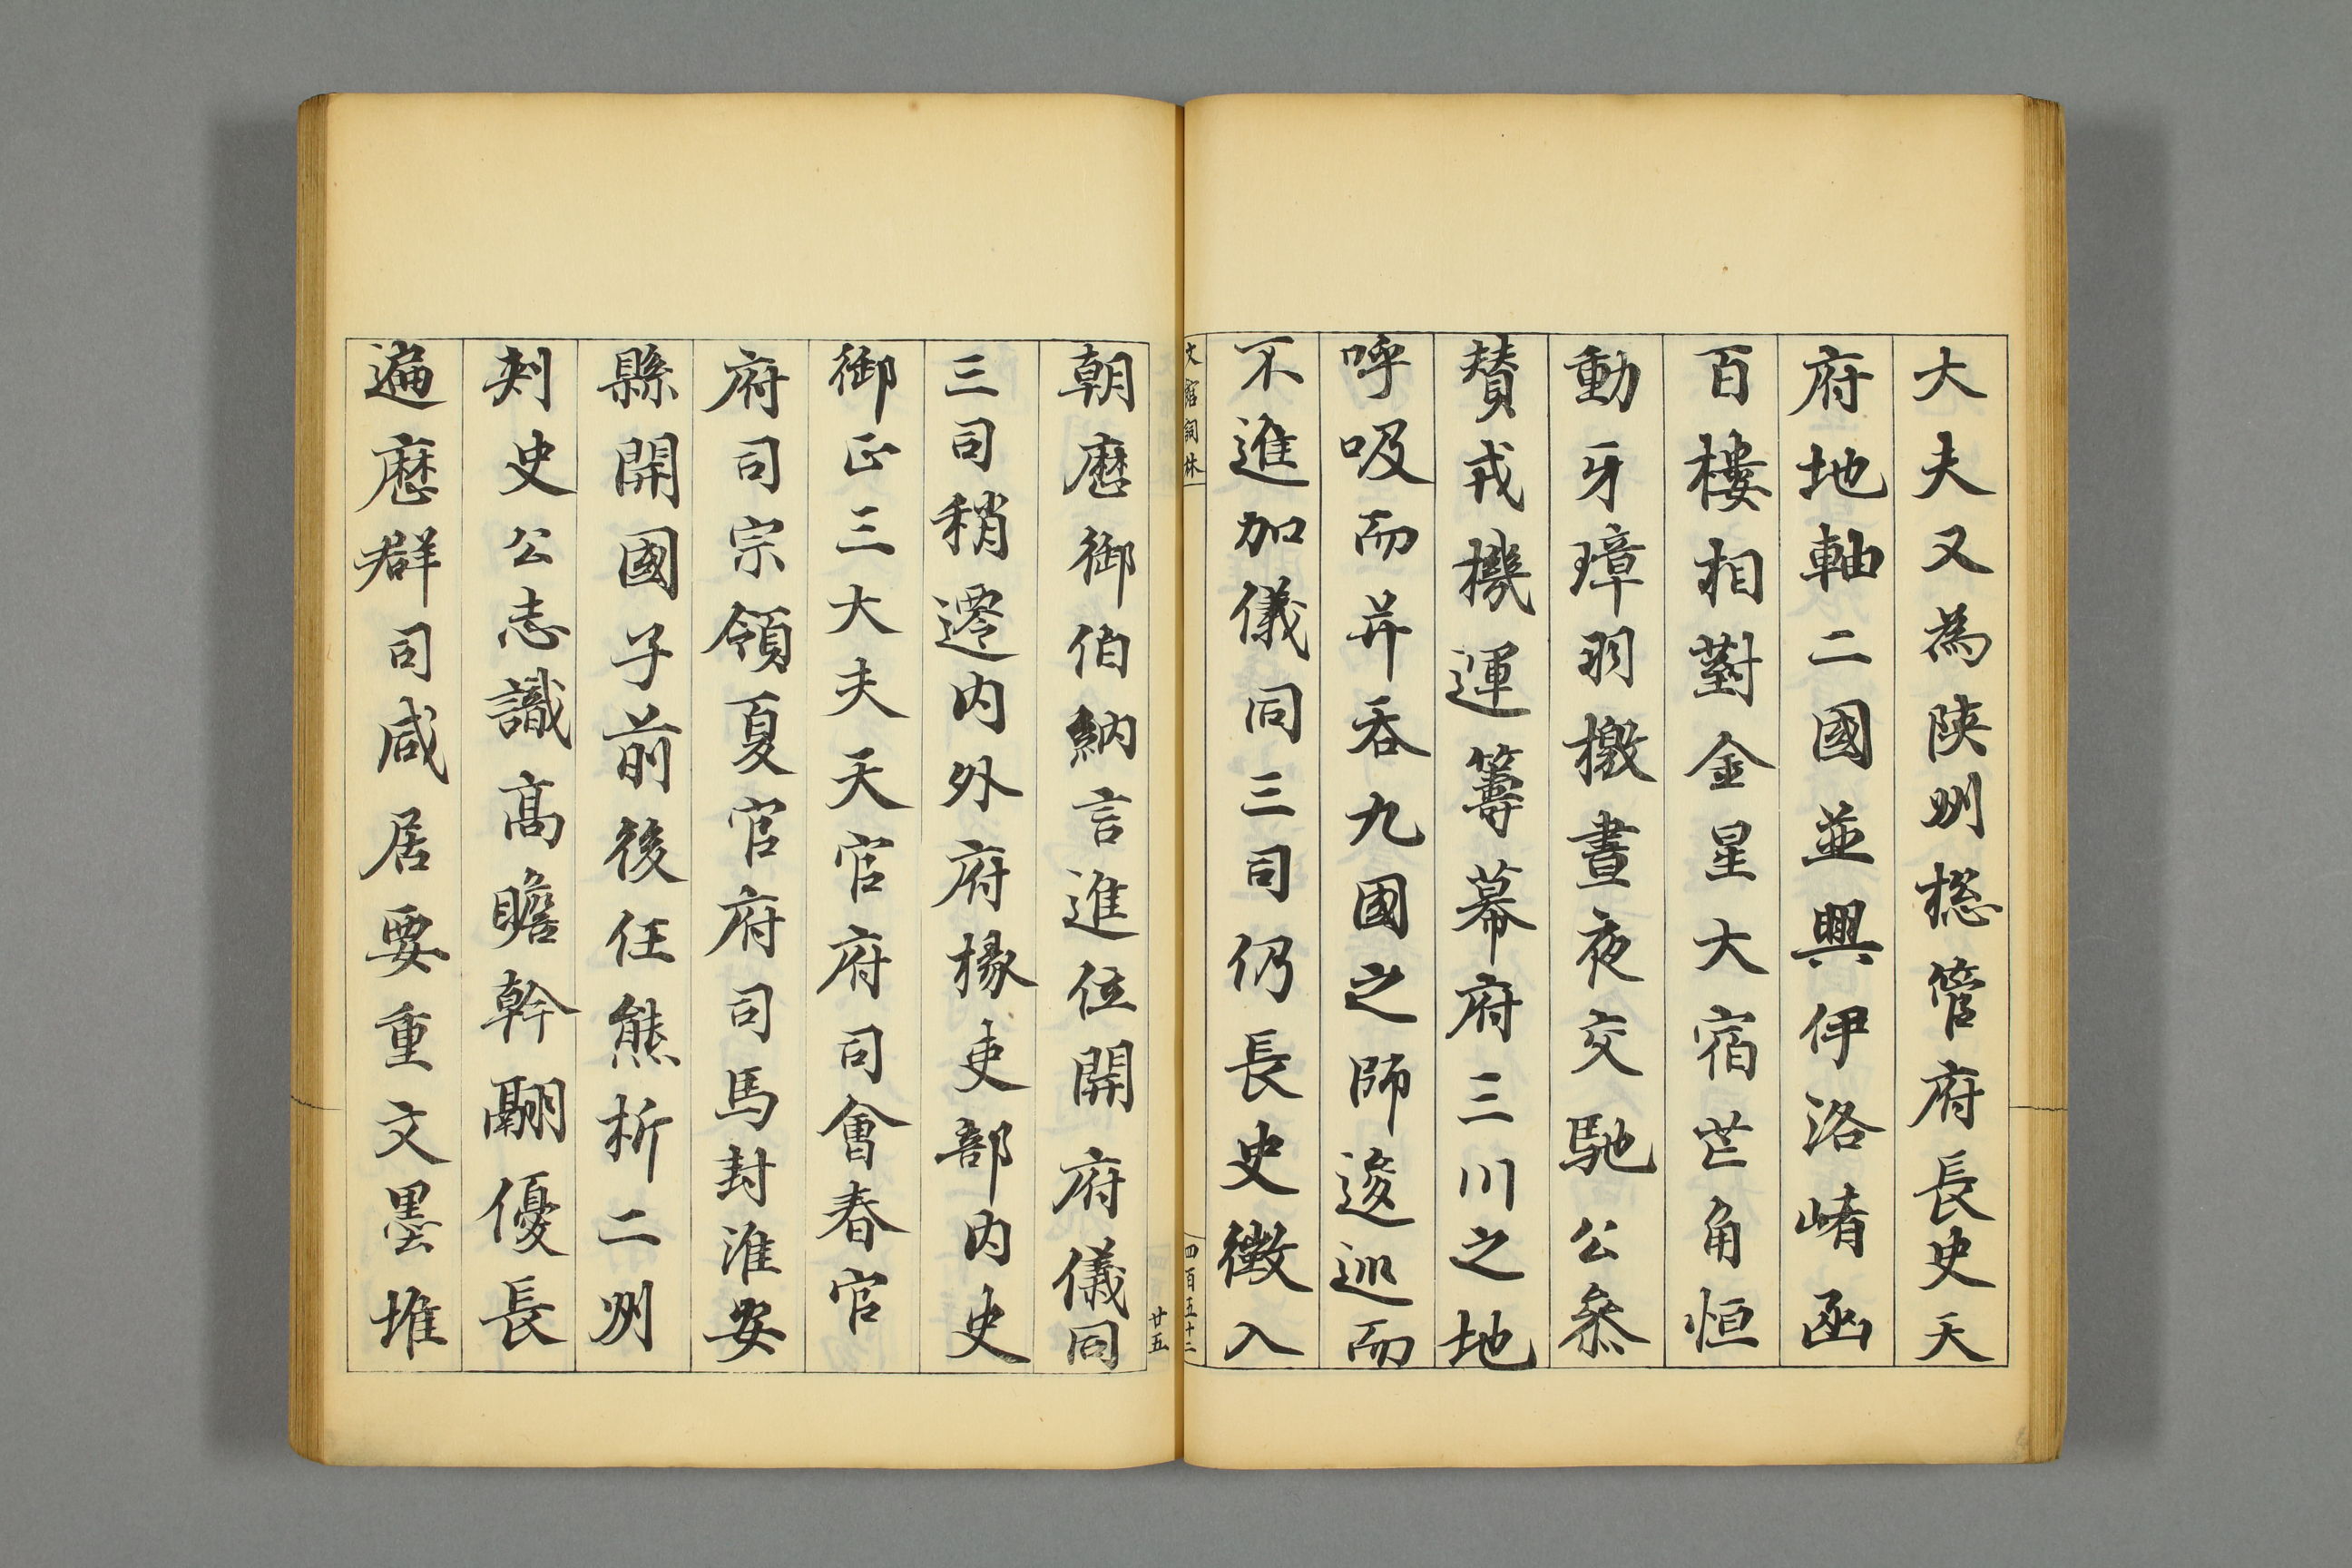 大夫又為陝州揔管府長史天
府地軸二國並興伊洛崤函
百樓相對金星大宿芒角恒
動牙璋羽檄晝夜交馳公叅
賛戎機運籌幕府三川之地
呼吸而并吞九國之師逡巡而
不進加儀同三司仍長史徵入
文館詞林
四百五十二
廿五
朝歷御伯納言進位開府儀同
三司稍遷内外府掾吏部内史
御正三大夫天官府司會春官
府司宗領夏官府司馬封淮安
縣開國子前後任熊析二州
刾史公志識髙贍幹翮優長
遍歷群司咸居要重文墨堆